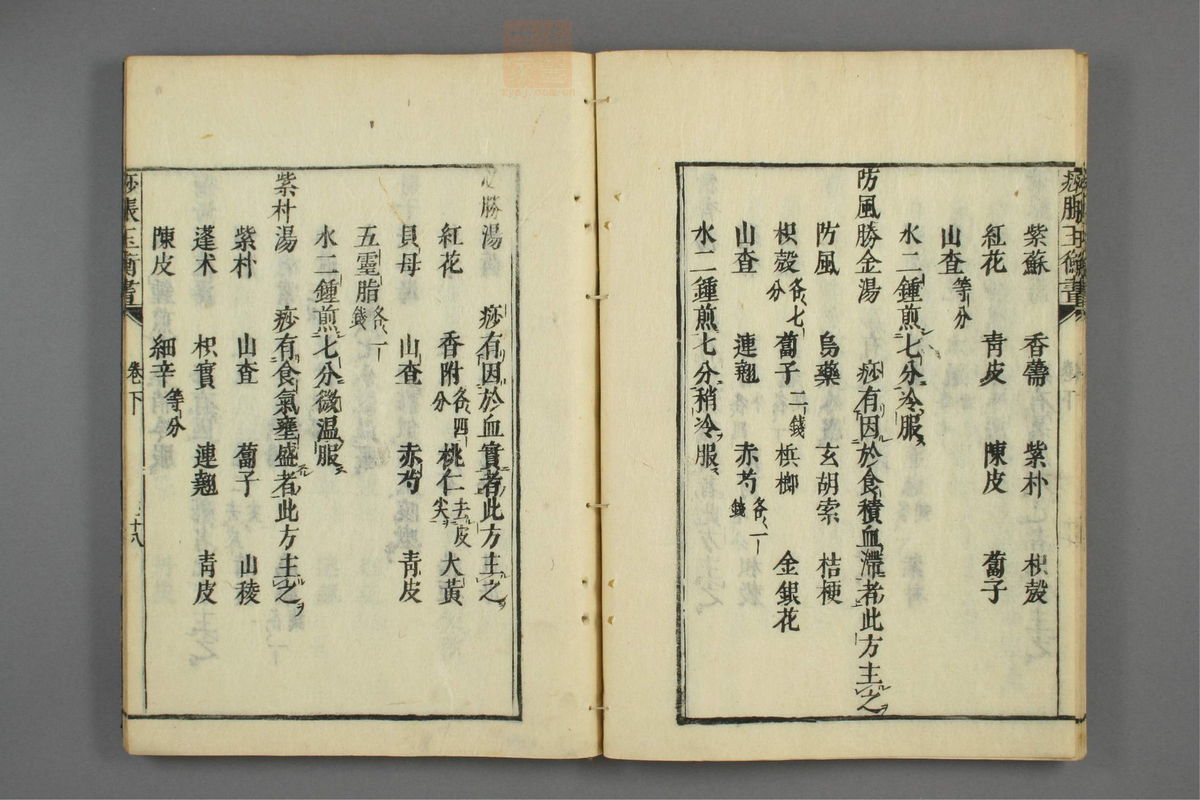 紫蘇 香薷 紫朴 枳殼
紅花 青皮 陳皮 蔔子
山查等分
水二鍾煎七分冷服
防風勝金湯 痧有因於食積血滯者此方主之
防風 烏藥 玄胡索 桔梗
枳殼各七分 蔔子二錢 梹榔 金銀花
山查 連翹 赤芍各一錢
水二鍾煎七分稍冷服
勝湯 痧有因於血實者此方主之
紅花 香附各四分 桃仁去皮尖 大黃
貝母 山查 赤芍 青皮
五靈脂各一錢
水二鍾煎七分微温服
紫朴湯 痧有食氣壅盛者此方主之
紫朴 山查 蔔子 山稜
蓬朮 枳實 連翹 青皮
陳皮 細辛等分
痧脹玉衡書 卷下